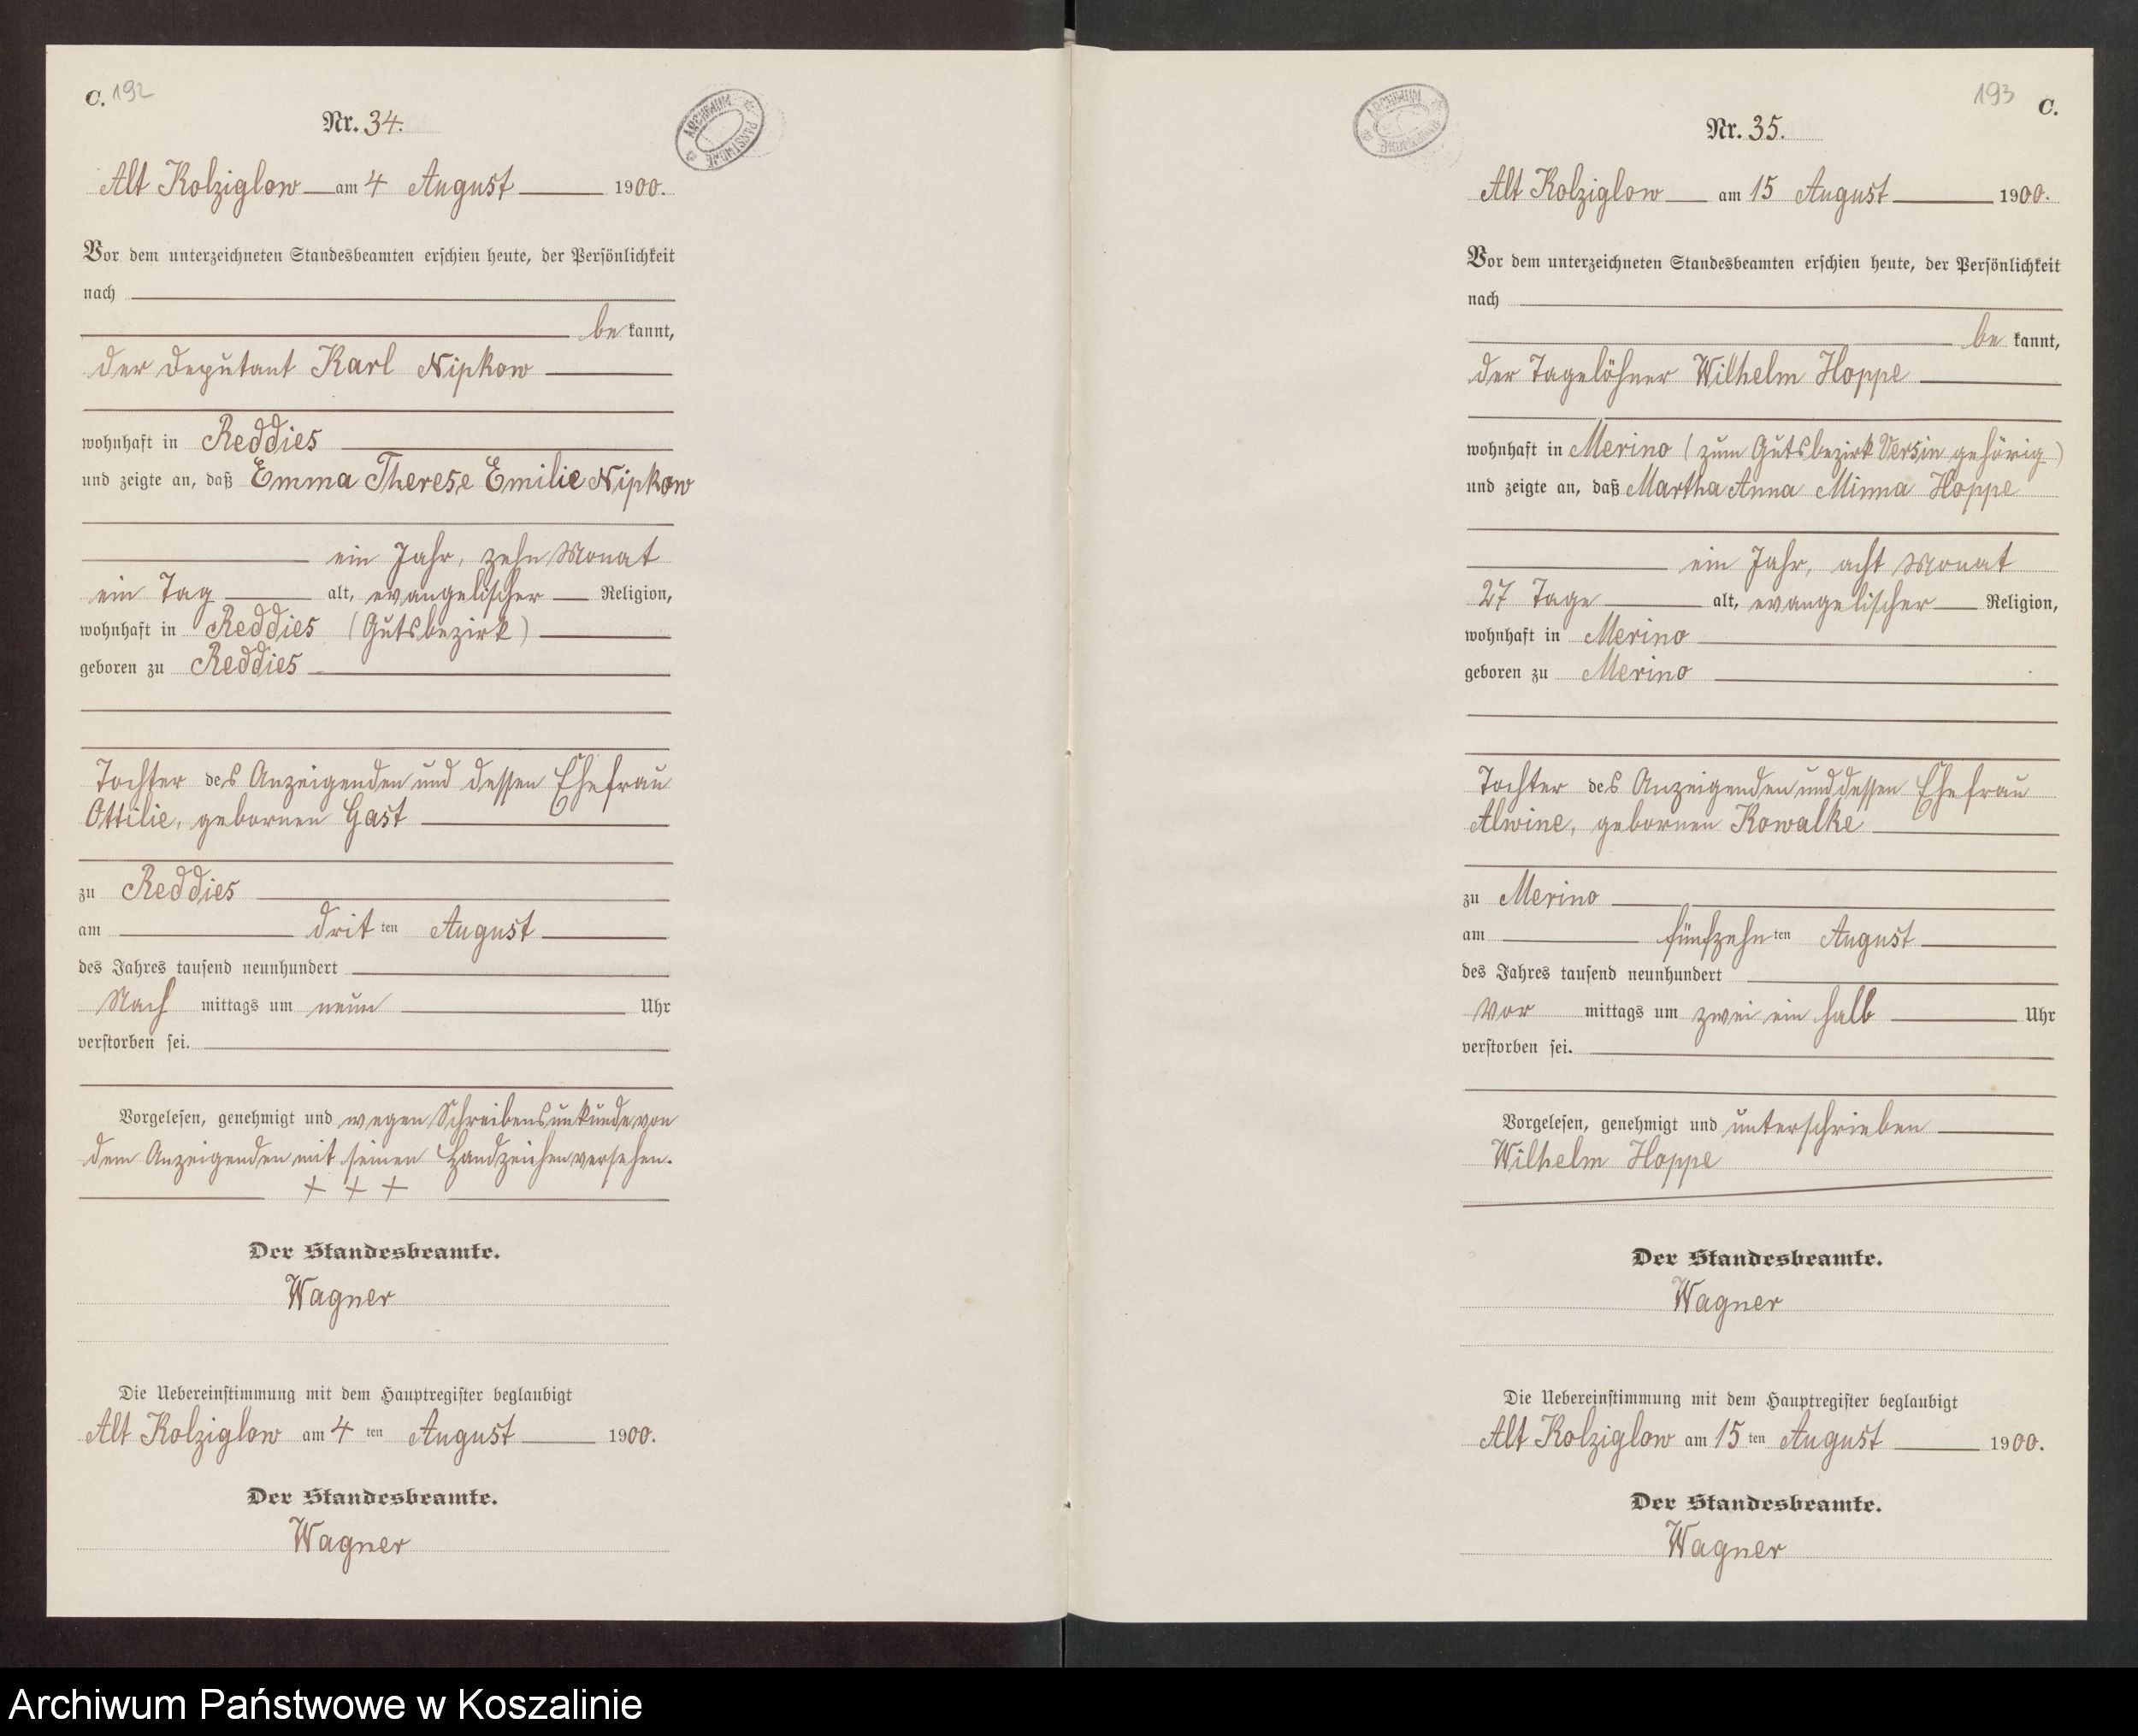 C. 192
Nr. 34.
ARCHIWUM PAŃSTWOWE
Alt Kolziglow am 4 August 1900.
Vor dem unterzeichneten Standesbeamten erschien heute, der Persönlichkeit
nach
be kannt,
der Deputant Karl Nipkow
wohnhaft in Reddies
und zeigte an, daß Emma Therese Emilie Nipkow
ein Jahr, zehn Monat
ein Tag alt, evangelischer Religion,
wohnhaft in Reddies (Gutsbezirk)
geboren zu Reddies
Tochter des Anzeigenden und dessen Ehefrau
Ottilie, gebornen Gast
zu Reddies
am drit ten August
des Jahres tausend neunhundert
Nach mittags um neun Uhr
verstorben sei.
Vorgelesen, genehmigt und wegen Schreibensunkunde von
dem Anzeigenden mit seinen Handzeichen versehen.
+ + +
Der Standesbeamte.
Wagner
Die Uebereinstimmung mit dem Hauptregister beglaubigt
Alt Kolziglow am 4 ten August 1900.
Der Standesbeamte.
Wagner
193 C.
Nr. 35.
ARCHIWUM PAŃSTWOWE
Alt Kolziglow am 15 August 1900.
Vor dem unterzeichneten Standesbeamten erschien heute, der Persönlichkeit
nach
be kannt,
der Tagelöhner Wilhelm Hoppe
wohnhaft in Merino (zum Gutsbezirk Versin gehörig)
und zeigte an, daß Martha Anna Minna Hoppe
ein Jahr, acht Monat
27 Tage alt, evangelischer Religion,
wohnhaft in Merino
geboren zu Merino
Tochter des Anzeigenden und dessen Ehefrau
Alwine, gebornen Kowalke
zu Merino
am fünfzehn ten August
des Jahres tausend neunhundert
Vor mittags um zwei ein halb Uhr
verstorben sei.
Vorgelesen, genehmigt und unterschrieben
Wilhelm Hoppe
Der Standesbeamte.
Wagner
Die Uebereinstimmung mit dem Hauptregister beglaubigt
Alt Kolziglow am 15 ten August 1900.
Der Standesbeamte.
Wagner
Archiwum Państwowe w Koszalinie